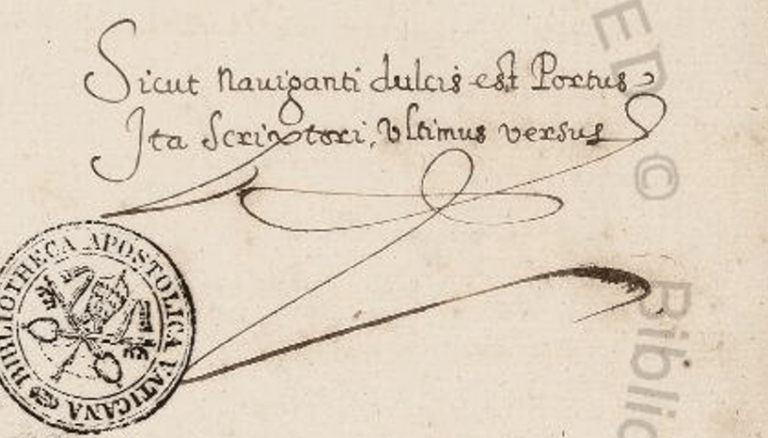 Sicut nauiganti dulcis est Portus
Ita Scriptori, Vltimus versus
BIBLIOTHECA APOSTOLICA VATICANA
ED © Biblio